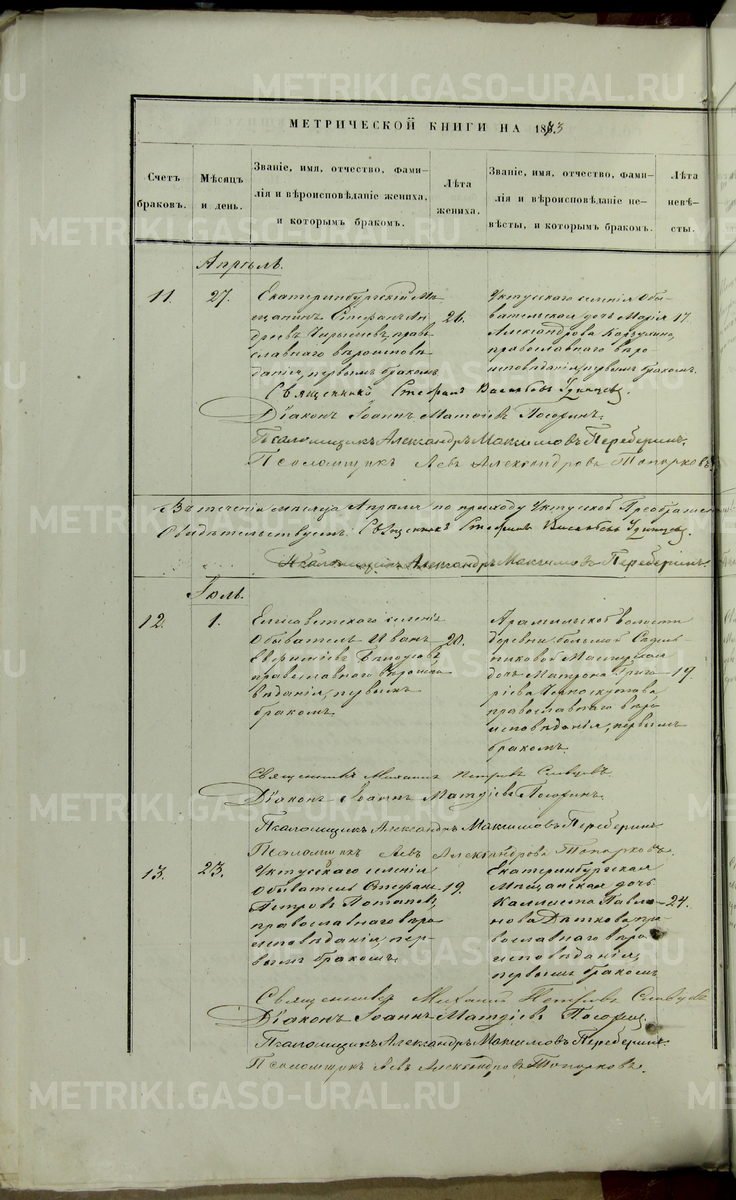 МЕТРИЧЕСКОЙ КНИГИ НА 1873
Счетъ браковъ.
Мѣсяцъ и день.
Званіе, имя, отчество, фами-
лія и вѣроисповѣданіе жениха,
и которымъ бракомъ.
Лѣта жениха.
Званіе, имя, отчество, фами-
лія и вѣроисповѣданіе не-
вѣсты, и которымъ бракомъ.
Лѣта невѣ-
сты.
Апрѣль.
11.
27.
Екатеринбургскій Мѣ-
щанинъ Стефанъ Ан
дреевъ право
славнаго вѣроисповѣ
данія, первымъ бракомъ
26.
Уктусскаго селенія Обы-
вательская дочь Марія
Александрова
православнаго вѣро
исповѣданія, первымъ бракомъ.
17.
Священникъ Стефанъ
Діаконъ Іоаннъ
Псаломщикъ Александръ Максимовъ Переберинъ.
Псаломщикъ Левъ Александровъ Топорковъ.
Въ теченіи мѣсяца Апрѣля по приходу Уктусской Преображен
Свидѣтельствуетъ: Священникъ Стефанъ
Псаломщикъ Александръ Максимовъ Переберинъ.
Іюль.
12.
1.
Елисаветскаго селенія
Обыватель Иванъ
православнаго вѣроиспо
вѣданія, первымъ
бракомъ
20.
Арамильской волости
деревни большой Седель
никовой
дочь Матрона Григо
ріева
православнаго вѣро
исповѣданія, первымъ
бракомъ.
19.
Священникъ Михаилъ Петровъ Словцовъ
Діаконъ Іоаннъ
Псаломщикъ Александръ Максимовъ Переберинъ
Псаломщикъ Левъ Александровъ Топорковъ.
13.
23.
Уктусскаго селенія
Обыватель Стефанъ
Петровъ Потаповъ,
православнаго вѣро
исповѣданія, пер-
вымъ бракомъ.
19.
Екатеринбургская
Мѣщанская дочь
Каллиста Павло
нова пра
вославнаго вѣро
исповѣданія,
первымъ бракомъ
24.
Священникъ Михаилъ Петровъ Словцовъ
Діаконъ Іоаннъ
Псаломщикъ Александръ Максимовъ Переберинъ.
Псаломщикъ Левъ Александровъ Топорковъ.
METRIKI.GASO-URAL.RU